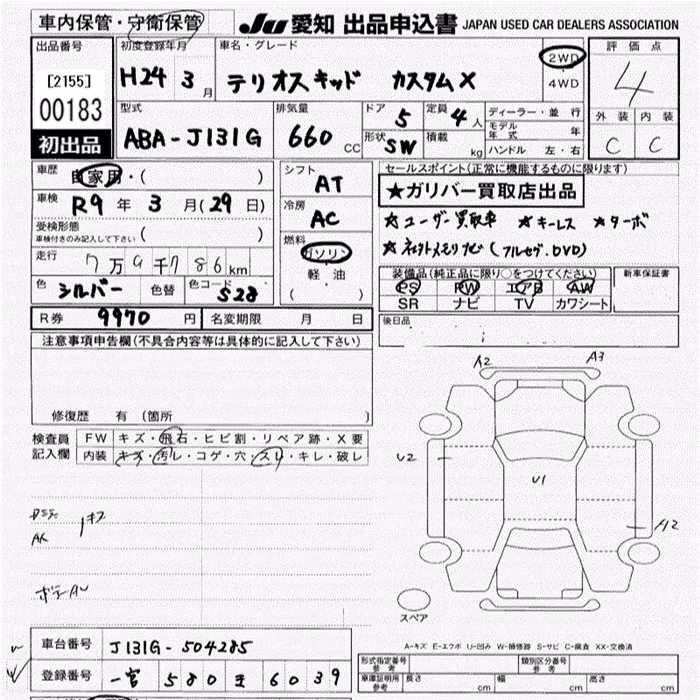 車内保管・守衛保管 JU 愛知 出品申込書 JAPAN USED CAR DEALERS ASSOCIATION
出品番号
[2155]
00183
初出品
初度登録年月
H24 3 月
車名・グレード
テリオスキッド カスタムX
2WD
4WD
評価点
4
外装 内装
C C
型式
ABA-J131G
排気量
660 CC
ドア 5
定員 4 人
形状 SW
積載 kg
ディーラー・並行
モデル年式 年
ハンドル 左・右
車歴 自家用・( )
車検 R9 年 3 月(29 日)
受検形態
車検付きのみ記入して下さい ( )
走行 7万9千786km
色 シルバー 色替 色コード S28
シフト
AT
冷房
AC
燃料
ガソリン
軽油
( )
セールスポイント(正常に機能するものに限ります)
★ガリバー買取店出品
☆ユーザー買取車 ☆キーレス ☆ターボ
(フルセグ.DVD)
装備品(純正品に限り○をつけてください) 新車保証書
PS PW エアB AW
SR ナビ TV カワシート
後日品
R券 9970 円 名変期限 月 日
注意事項申告欄(不具合内容等は具体的に記入して下さい)
修復歴 有(箇所
検査員記入欄
FW キズ・飛石・ヒビ割・リペア跡・X要
内装 キズ・汚レ・コゲ・穴・スリ・キレ・破レ
A2 A3
U2 U1 A12
スペア
A-キズ E-エクボ U-凹み W-補修跡 S-サビ C-腐食 XX-交換済
車台番号 J131G-504285
登録番号 一宮 580 き 6039
形式指定番号 参考
類別区分番号 参考
車庫証明用 参考 長さ cm 幅 cm 高さ cm